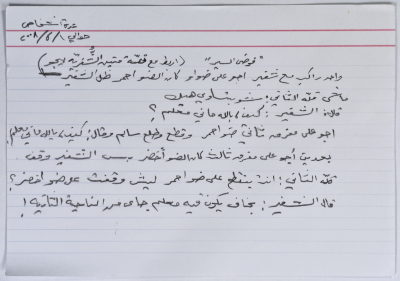 عدة أشخاص
حوالي ٢٠٠٨/٦/١
"فوضى السير" (اربط مع قصة متينة الشفرية لابجر)
واحد راكب مع شفير اجو على ضواو كان الضو احمر ظل الشفير
ماشي قله الثاني: شو بتساوي هيك
قله الشفير: كيف، بالك ماني معلم؟
اجو على مفرق ثاني ضو احمر وقطع وطلع سالم وقال: كيف، بالك ماني معلم
بعدين أجو على مفرق ثالث كان الضو أخضر بس الشفير وقف.
قله الثاني: انت بتقطع على ضو احمر ليش وقفت على ضو اخضر؟
قال الشفير: بخاف يكون فيه معلم جاي من الناحية التانية!